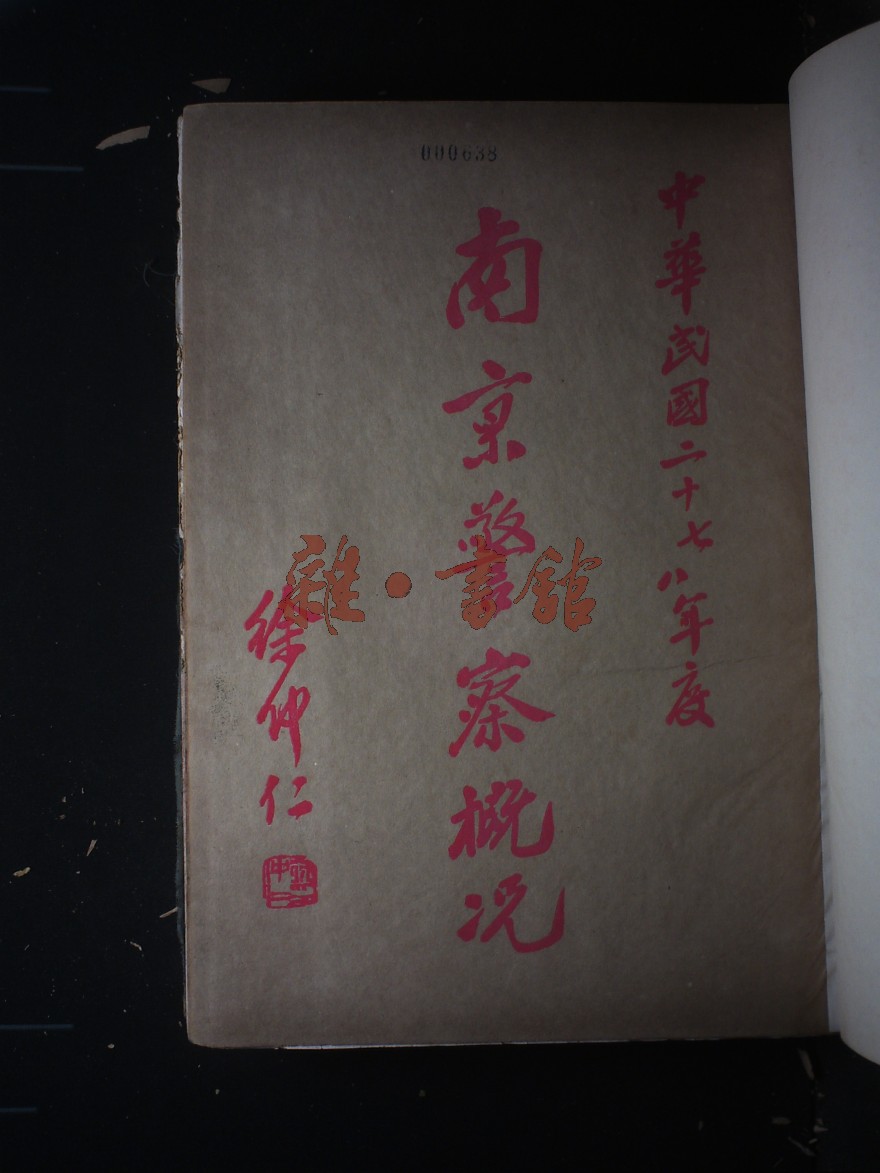 000638
中華民國二十七八年度
南京警察概况
徐仲仁
雜·書館